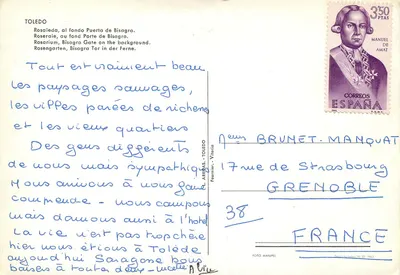 TOLEDO
Rosaleda, al fondo Puerta de Bisagra.
Roseraie, au fond Porte de Bisagra.
Rosarium, Bisagra Gate on the background.
Rosengarten, Bisagra Tor in der Ferne.
Tout est vraiment beau
les paysages sauvages,
les villes parées de richesses
et les vieux quartiers
Des gens différents
de nous mais sympathiques
Nous arrivons à nous faire
comprendre - nous campons
mais dormons aussi à l'hotel
La vie n'est pas trop chère
hier nous étions à Tolède
aujourd'hui Saragosse bons
baisers à toutes deux -
3,50
PTAS
MANUEL
DE
AMAT
CORREOS
ESPAÑA
BRUNET-MANQUAT
17 rue de Strasbourg
GRENOBLE
38
FRANCE
TOLEDO